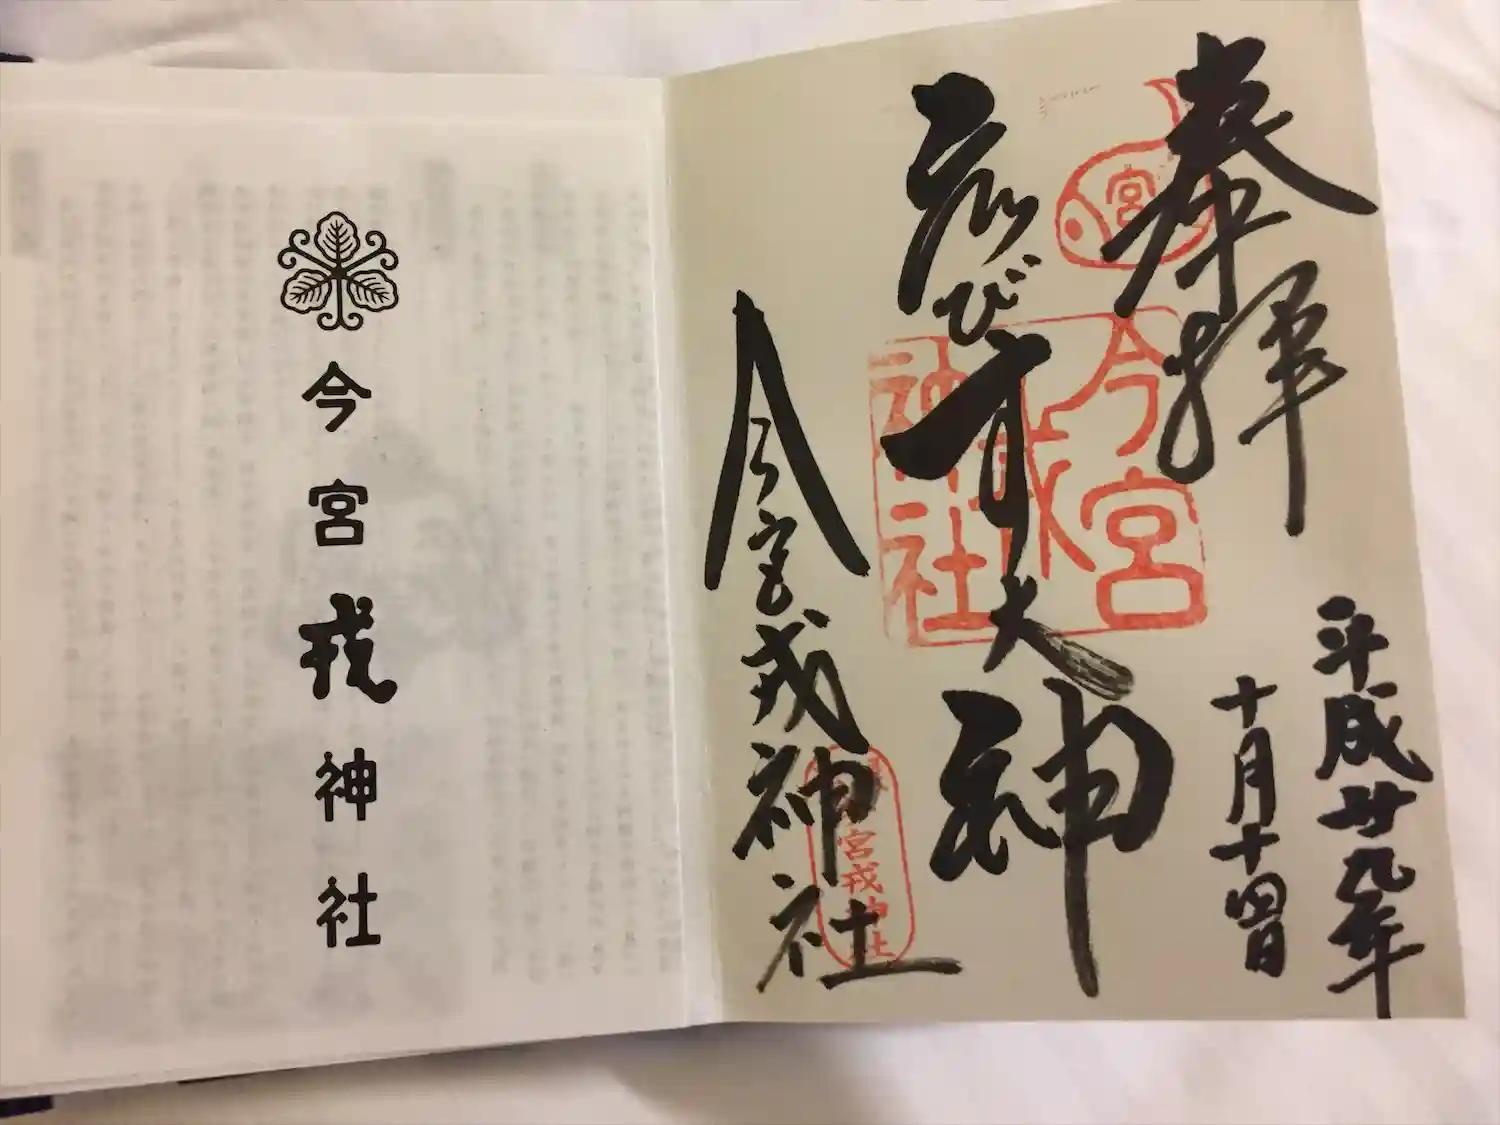 奉拝
平成廿九年
十月十四日
宮
今宮
戎
神社
びす大神
今宮戎神社
宮戎神社
今宮戎神社